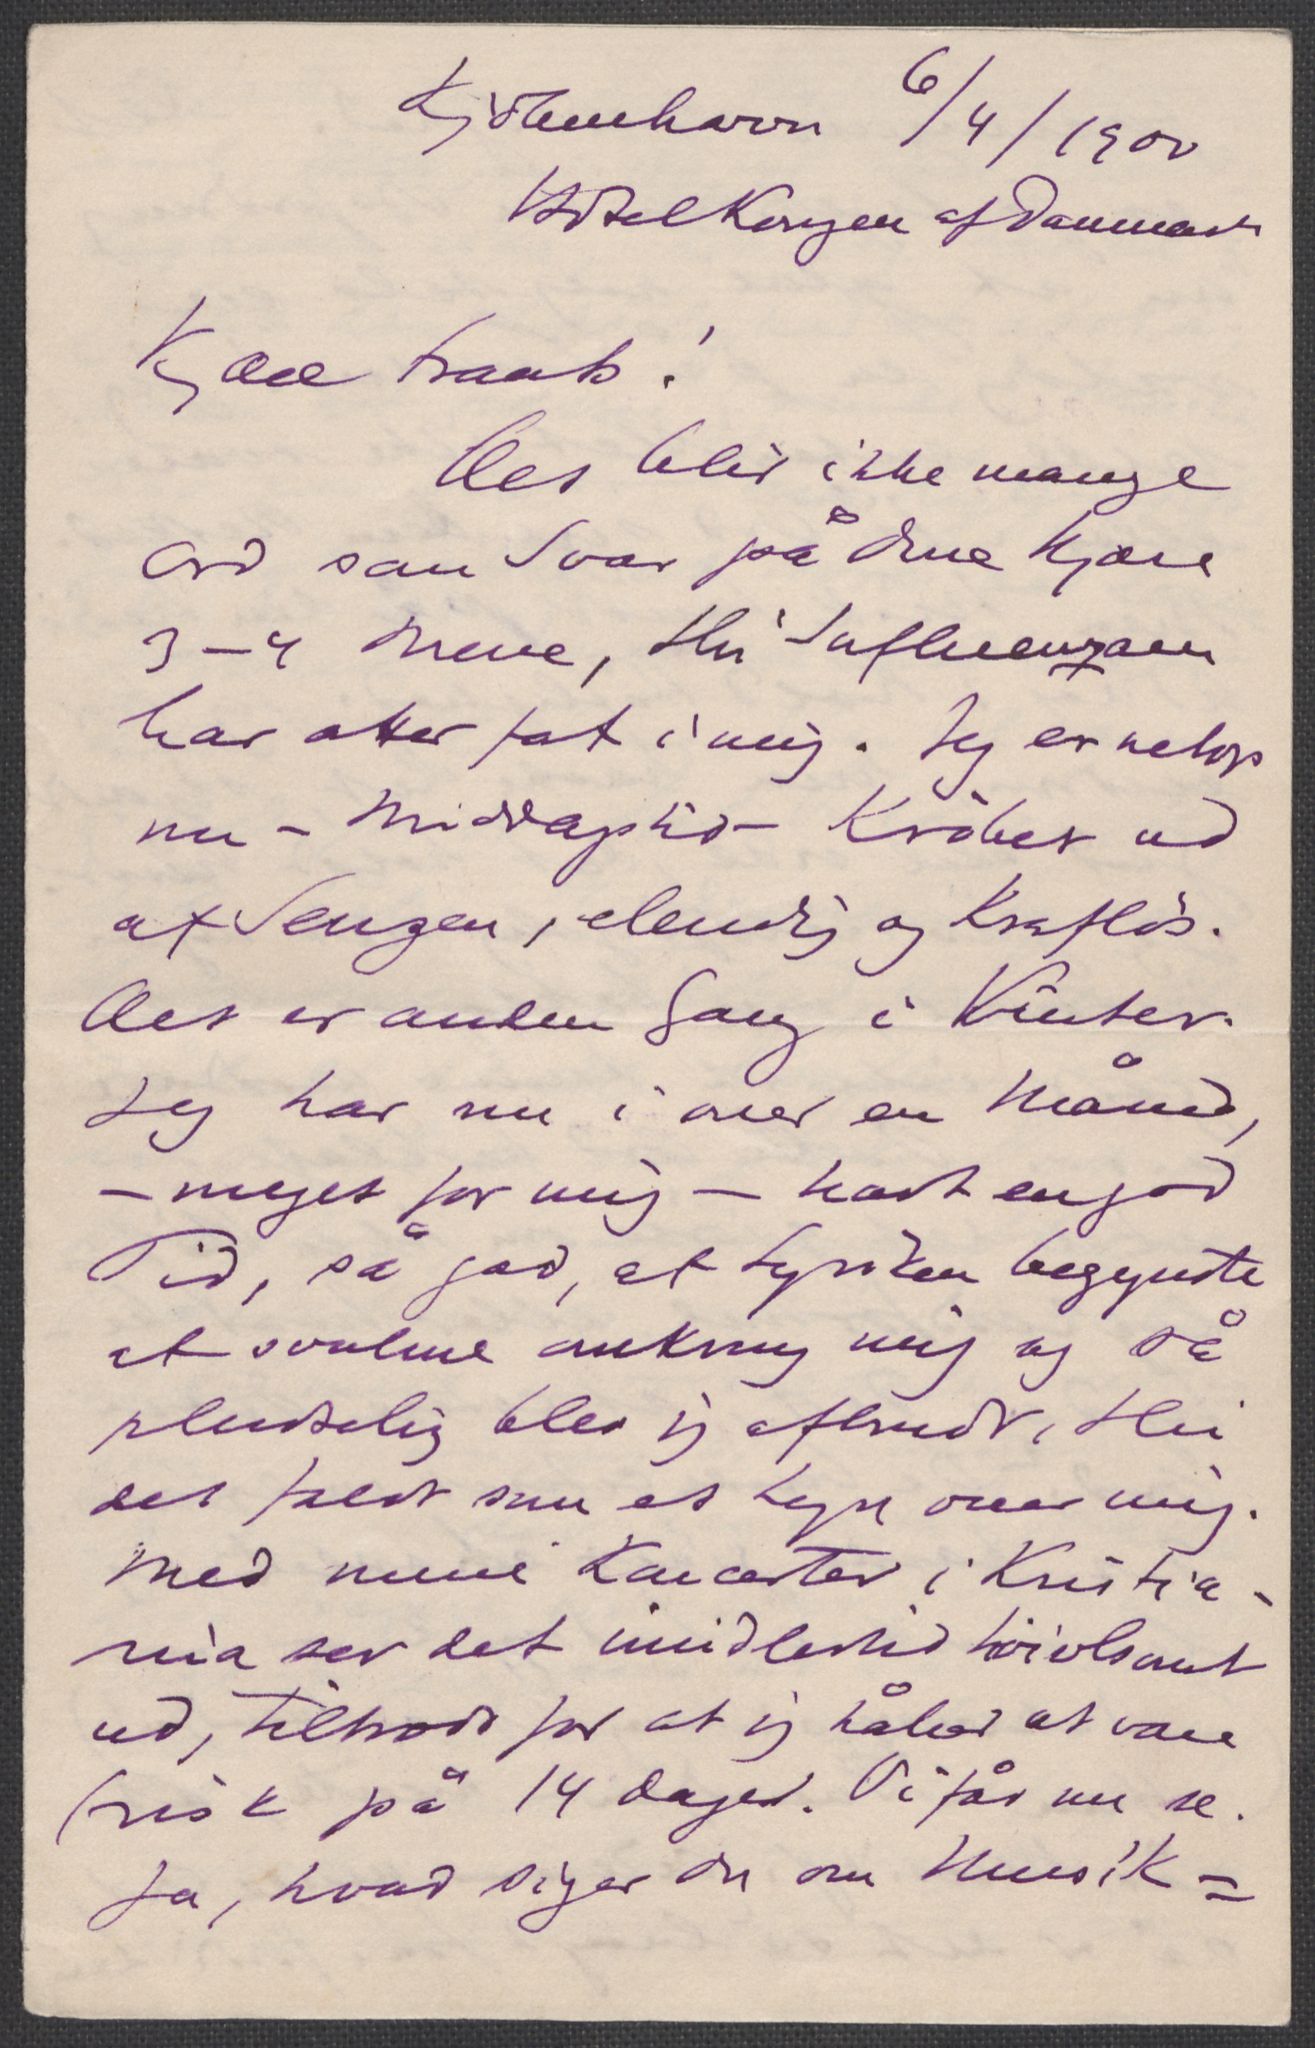 Kjöbenhavn 6/4/1900
Hôtel Kongen af Danmark
Kjære Frants!
Det blir ikke mange
Ord som Svar på dine kjære
3–4 Breve, thi Influenzaen
har atter fat i mig. Jeg er netop
nu – Middagstid – Kröbet ud
af Sengen, elendig og Kraftlös.
Det er anden Gang i Vinter.
Jeg har nu i over en Måned,
– meget for mig – havt en god
Tid, så god, at Lyriken begyndte
at svulme omkring mig og så
pludselig blev jeg afbrudt, thi
det faldt som et Lyn over mig.
Med mine Koncerter i Kristia-
nia ser det imidlertid tvivlsomt
ud, tiltrods for at jeg håber at være
frisk på 14 Dage. Vi får nu se.
Ja, hvad siger du om Musik=